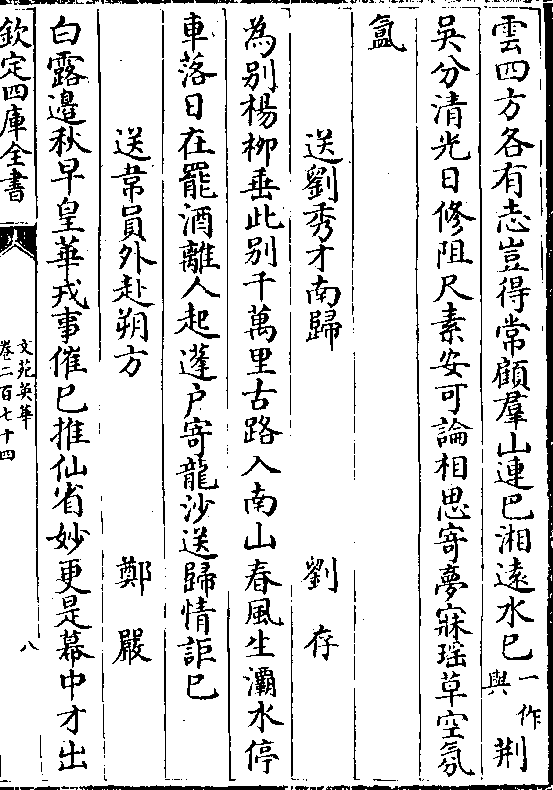 雲四方各有志豈得常顧羣山連巴湘遠水巳一作與荆
吳分清光日修阻尺素安可論相思寄夢寐瑶草空氛
氳
送劉秀才南歸 劉存
為别楊柳垂此别千萬里古路入南山春風生灞水停
車落日在罷酒離人起蓬户寄龍沙送歸情詎巳
送韋員外赴朔方 鄭嚴
白露邉秋早皇華戎事催巳推仙省妙更是幕中才出
欽定四庫全書
文苑英華
卷二百七十四
八